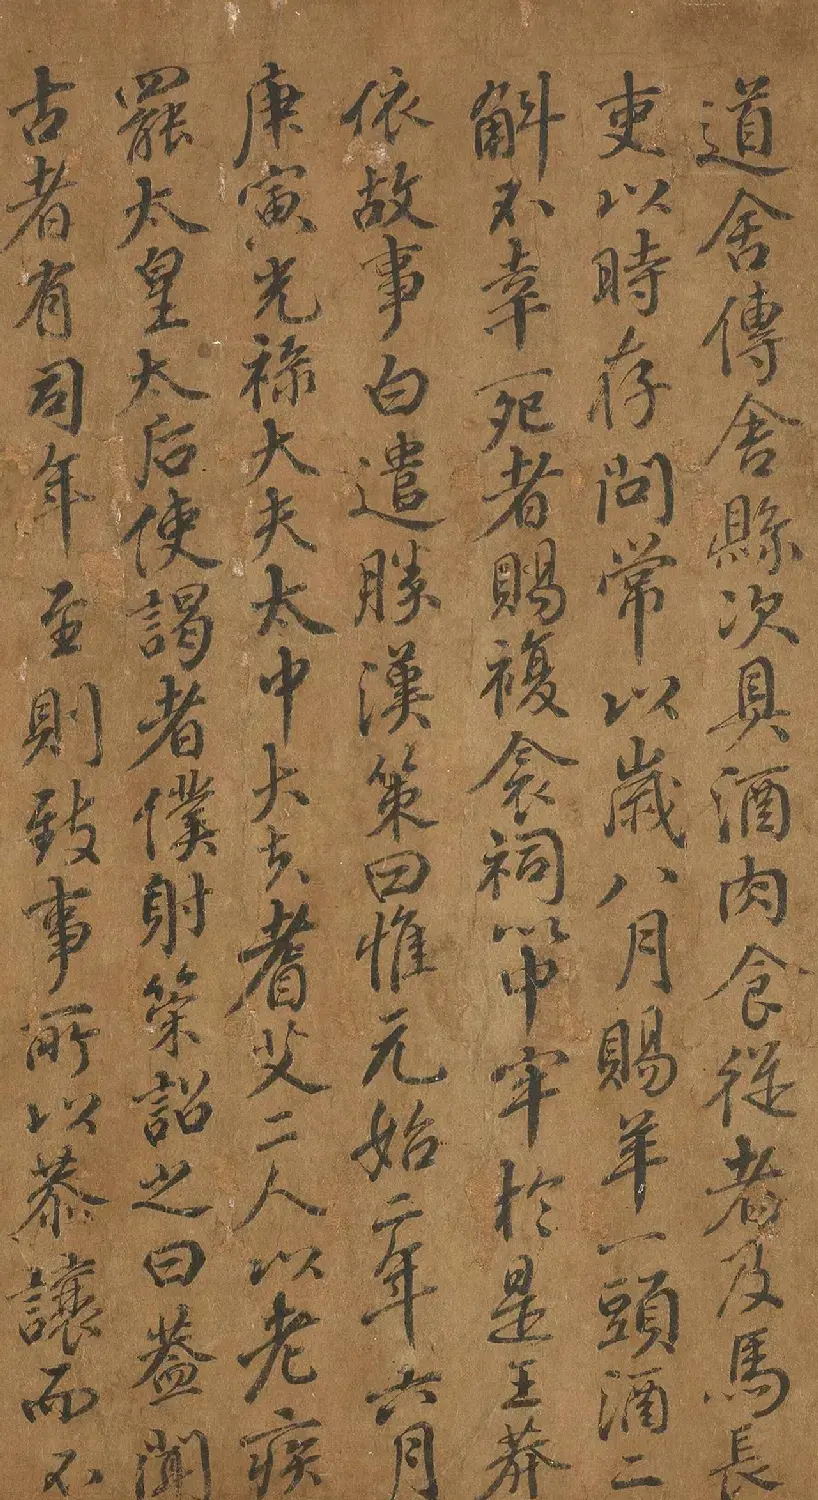 道舍傳舍縣次具酒肉食從者及馬長
吏以時存問常以歲八月賜羊一頭酒二
斛不幸死者賜複衾祠以中牢於是王莽
依故事白遣勝漢策曰惟元始二年六月
庚寅光祿大夫太中大夫耆艾二人以老疾
罷太皇太后使謁者僕射策詔之曰蓋聞
古者有司年至則致事所以恭讓而不